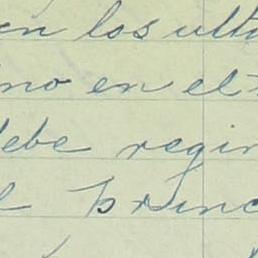 en los ulti
no en el
debe regir
l princ